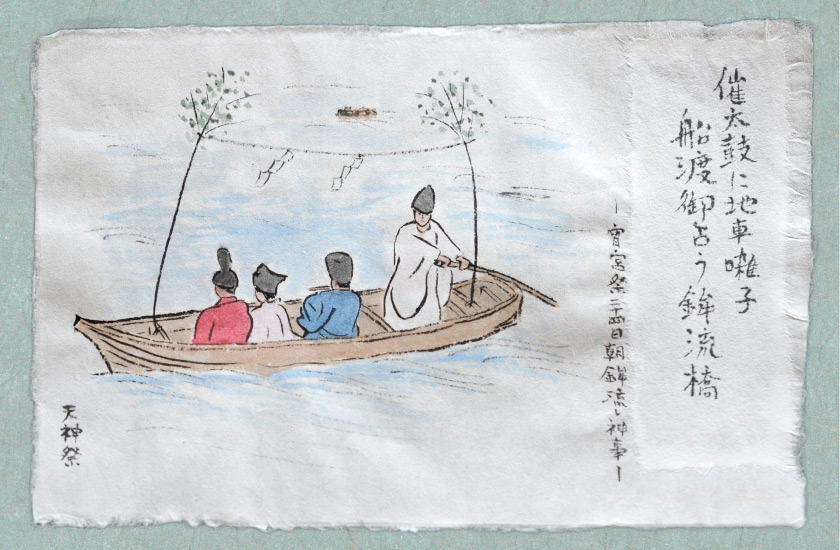 催太鼓に地車囃子
船渡御占う鉾流橋
ー宵宮祭二十四日朝鉾流し神事ー
天神祭